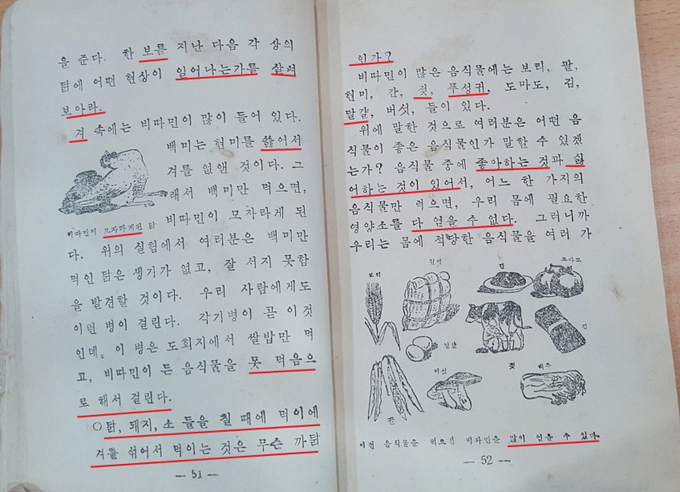 을 준다. 한 보름 지난 다음 각 상의
닭에 어떤 현상이 일어나는가를 살펴
보아라.
겨 속에는 비파민이 많이 들어 있다.
백미는 현미를 쓿어서
겨를 없앤 것이다. 그
래서 백미만 먹으면,
비파민이 모자라게 된
비파민이 모자라게된 닭
다. 위의 실험에서 여러분은 백미만
먹인 닭은 생기가 없고, 잘 서지 못함
을 발견할 것이다. 우리 사람에게도
이런 병이 걸린다. 각기병이 곧 이것
인데, 이 병은 도회지에서 쌀밥만 먹
고, 비파민이 든 음식물을 못 먹음으
로 해서 걸린다.
○닭, 돼지, 소 들을 칠 때에 먹이에
겨를 섞어서 먹이는 것은 무슨 까닭
— 51 —
인가?
비파민이 많은 음식물에는 보리, 팥,
현미, 간, 젖, 푸성귀, 도마도, 김,
달걀, 버섯, 들이 있다.
위에 말한 것으로 여러분은 어떤 음
식물이 좋은 음식물인가 말할 수 있겠
는가? 음식물 중에 좋아하는 것과 싫
어하는 것이 있어서, 어느 한 가지의
음식물만 먹으면, 우리 몸에 필요한
영양소를 다 얻을 수 없다. 그러니까
우리는 몸에 적당한 음식물을 여러 가
보리
간
도마도
달걀
젖
김
버섯
배추
이런 음식물을 먹으면 비파민을 많이 얻을 수 있다.
— 52 —